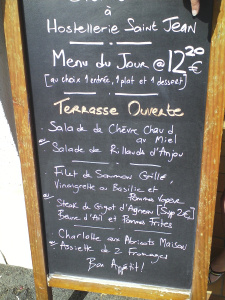 à
Hostellerie Saint Jean
Menu du Jour @ 12,20 €
[au choix 1 entrée, 1 plat et 1 dessert]
Terrasse Ouverte
Salade de Chèvre Chaud
au Miel
Salade de Rillauds d'Anjou
Filet de Saumon Grillé,
Vinaigrette au Basilic et
Pommes Vapeur
Steak de Gigot d'Agneau [Sup 2€]
Beurre d'Ail et Pommes Frites
Charlotte aux Abricots Maison
Assiette de 2 Fromages
Bon Appétit!